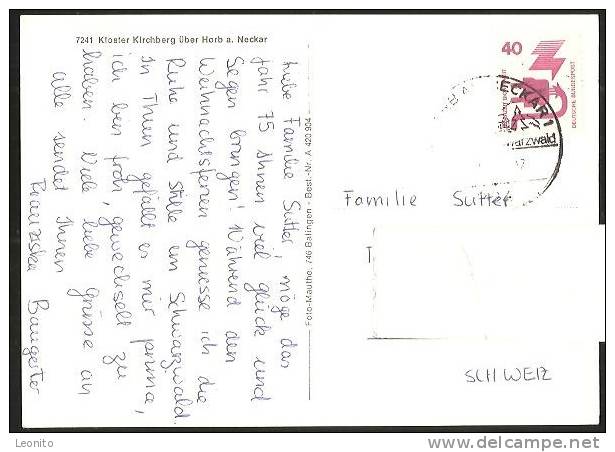 7241 Kloster Kirchberg über Horb a. Neckar
Liebe Familie Sutter, möge das
Jahr 75 Ihnen viel Glück und
Segen bringen! Während den
Weihnachtsferien geniesse ich die
Ruhe und Stille im Schwarzwald.
In Thun gefällt es mir prima,
ich bin froh, gewechselt zu
haben. Viele liebe Grüsse an
alle sendet Ihnen
Franziska Baugerter
Foto-Mauthe, 746 Balingen - Best.-Nr. A 420 904
40
DEUTSCHE BUNDESPOST
NECKAR 1
warzwald
Familie Sutter
T
SCHWEIZ
Leonito
www.delcampe.net